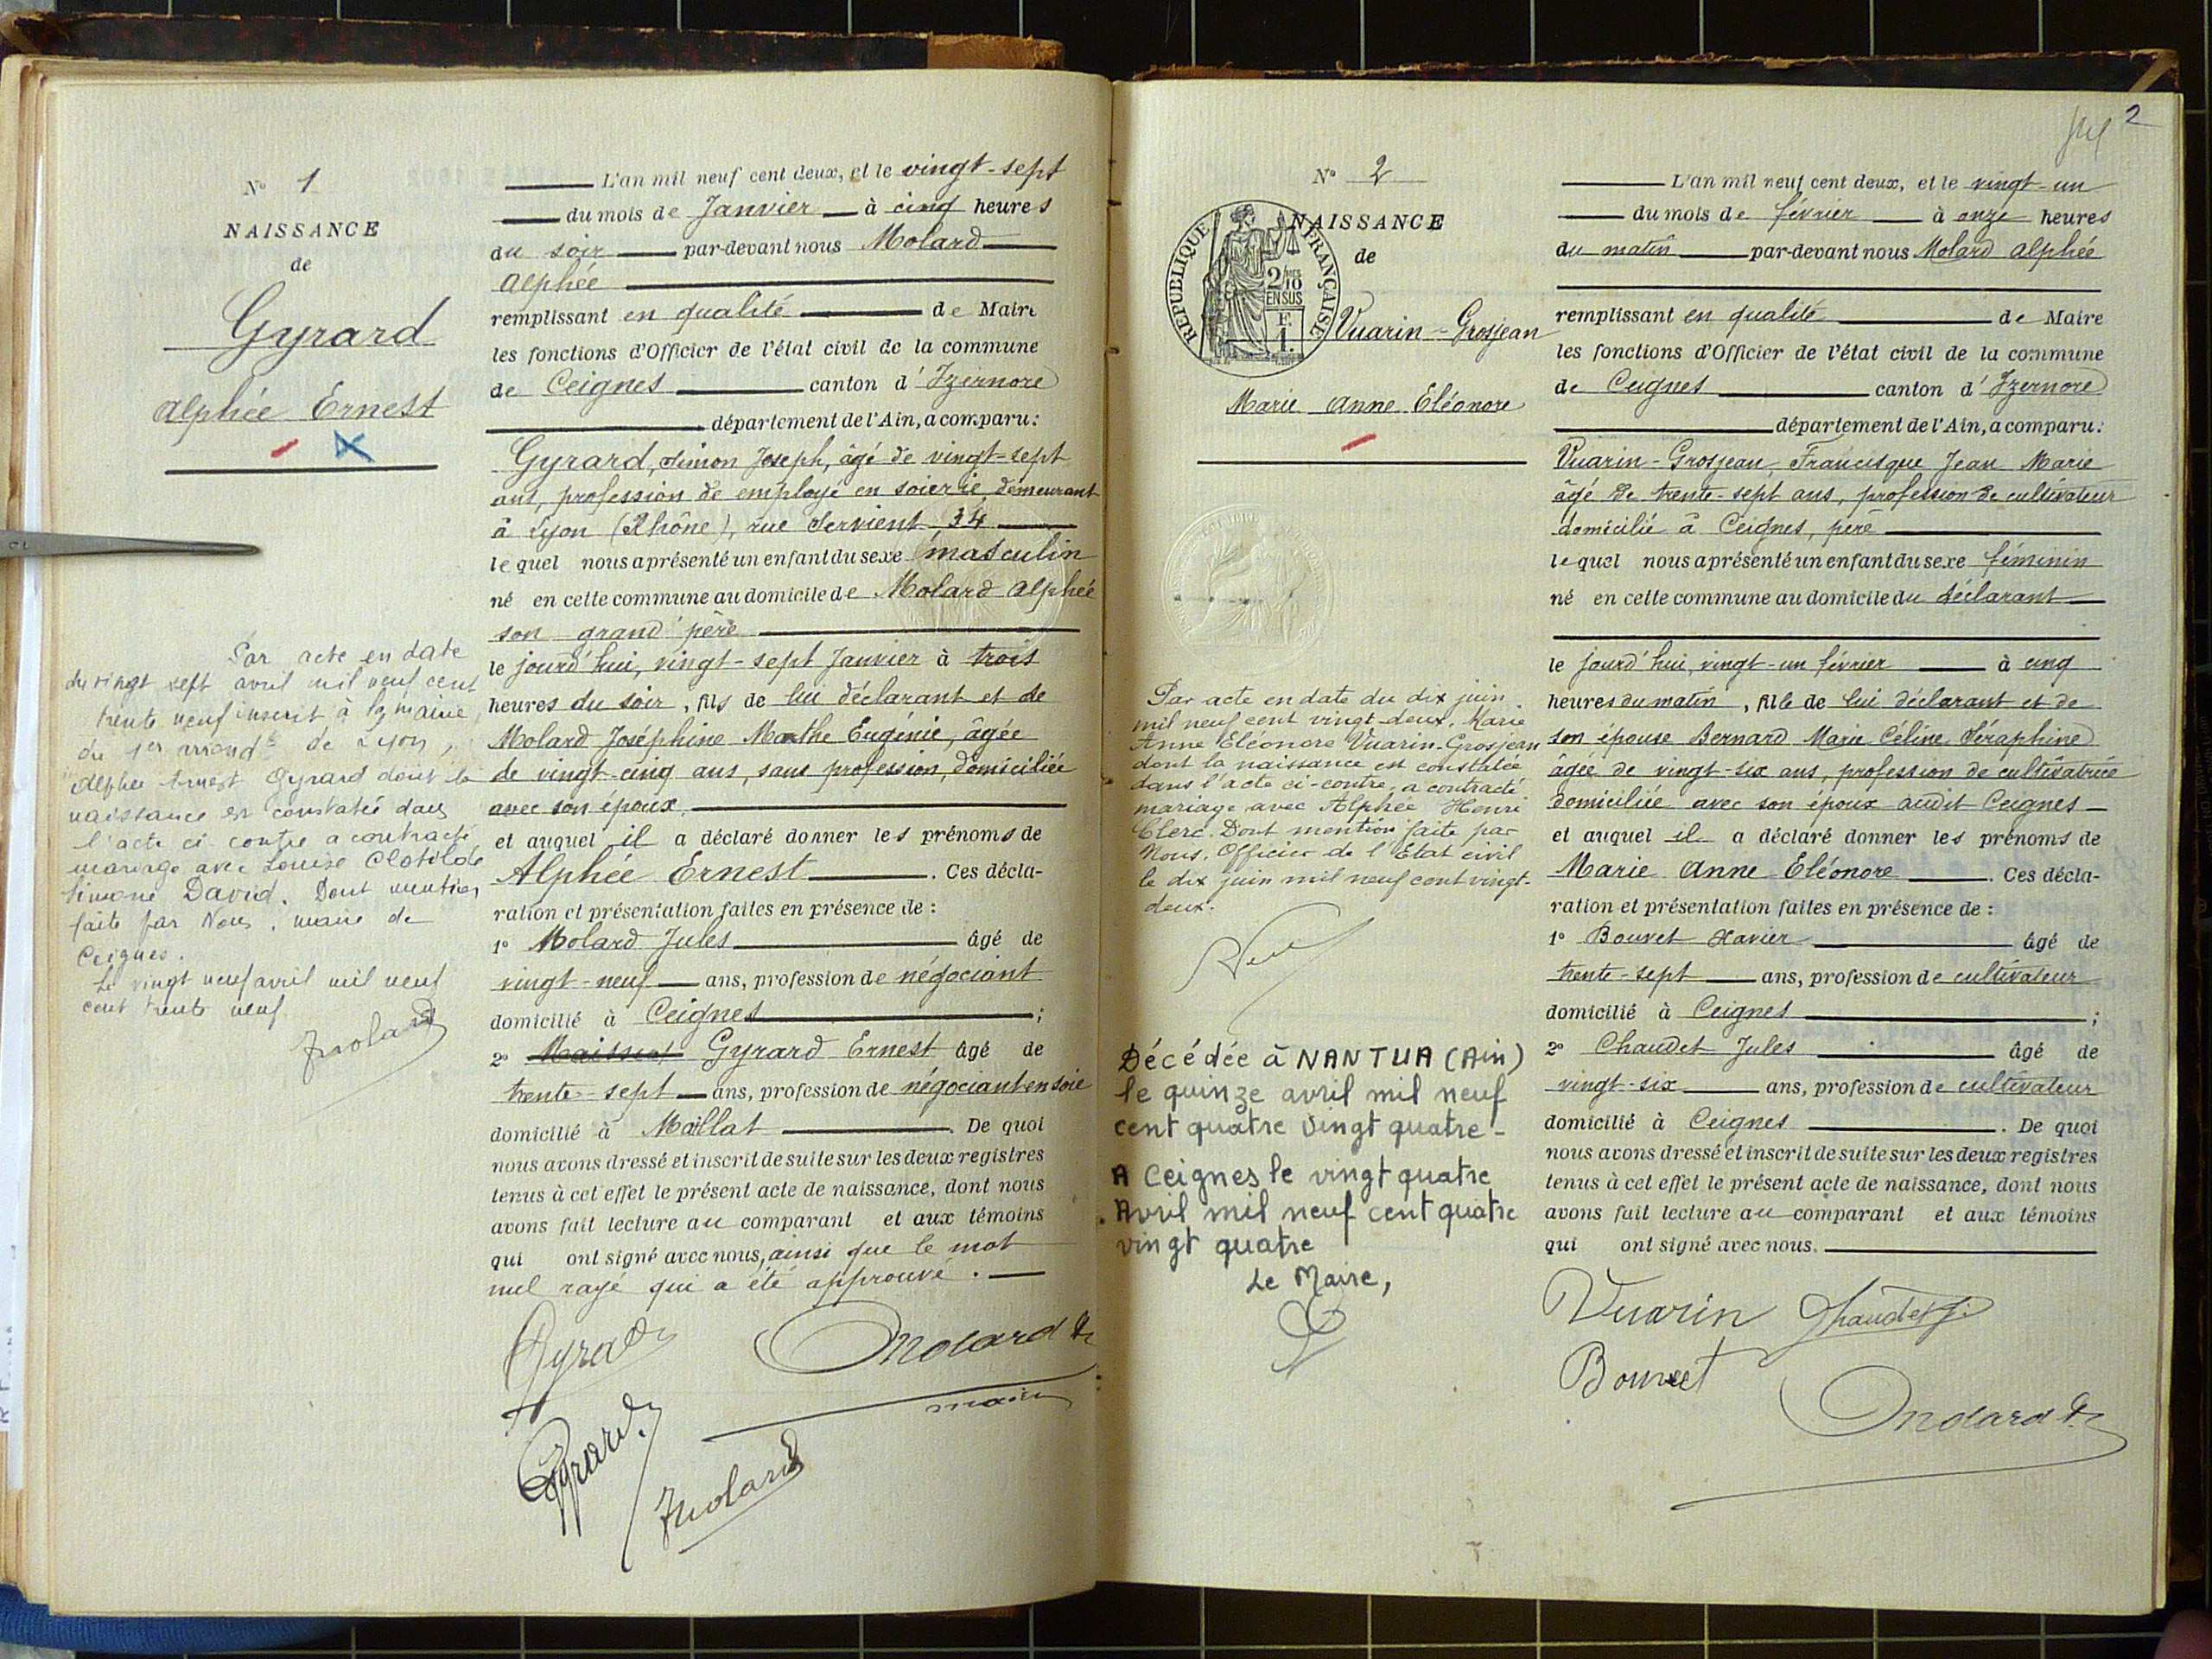 N° 1
NAISSANCE
de
Gyrard
Alphée Ernest
Par acte en date
du vingt sept avril mil neuf cent
trente neuf inscrit à la mairie
du 1er arrondt de Lyon,
Alphée Ernest Gyrard dont la
naissance est constatée dans
l'acte ci contre a contracté
mariage avec Louise Clotilde
Simone David. Dont mention
faite par Nous, maire de
Ceignes.
Le vingt neuf avril mil neuf
cent trente neuf.
JMolard
L'an mil neuf cent deux, et le vingt-sept
du mois de Janvier à cinq heures
du soir par-devant nous Molard
Alphée
remplissant en qualité de Maire
les fonctions d'Officier de l'état civil de la commune
de Ceignes canton d'Izernore
département de l'Ain, a comparu:
Gyrard, Simon Joseph, âgé de vingt-sept
ans, profession de employé en soierie, demeurant
à Lyon (Rhône), rue Servient, 34
lequel nous a présenté un enfant du sexe masculin
né en cette commune au domicile de Molard Alphée
son grand'père
le jourd'hui, vingt-sept Janvier à trois
heures du soir, fils de lui déclarant et de
Molard Joséphine Marthe Eugénie, âgée
de vingt-cinq ans, sans profession, domiciliée
avec son époux.
et auquel il a déclaré donner les prénoms de
Alphée Ernest. Ces décla-
ration et présentation faites en présence de :
1° Molard Jules âgé de
vingt-neuf ans, profession de négociant
domicilié à Ceignes ;
2° Gyrard Ernest âgé de
trente-sept ans, profession de négociant en soie
domicilié à Maillat. De quoi
nous avons dressé et inscrit de suite sur les deux registres
tenus à cet effet le présent acte de naissance, dont nous
avons fait lecture au comparant et aux témoins
qui ont signé avec nous, ainsi que le mot
nul rayé qui a été approuvé.
Gyrard
Molard A.
maire
Gyrard
JMolard
2
N° 2
NAISSANCE
de
REPUBLIQUE FRANÇAISE
2/10
EN SUS
F.
1.
Vuarin-Grosjean
Marie Anne Eléonore
Par acte en date du dix juin
mil neuf cent vingt-deux, Marie
Anne Eléonore Vuarin-Grosjean
dont la naissance est constatée
dans l'acte ci-contre, a contracté
mariage avec Alphée Henri
Clerc. Dont mention faite par
Nous, Officier de l'Etat civil
le dix juin mil neuf cent vingt-
deux.
Décédée à NANTUA (Ain)
le quinze avril mil neuf
cent quatre vingt quatre -
A Ceignes le vingt quatre
Avril mil neuf cent quatre
vingt quatre
Le Maire,
L'an mil neuf cent deux, et le vingt-un
du mois de février à onze heures
du matin par-devant nous Molard Alphée
remplissant en qualité de Maire
les fonctions d'Officier de l'état civil de la commune
de Ceignes canton d'Izernore
département de l'Ain, a comparu:
Vuarin-Grosjean Francisque Jean Marie
âgé de trente-sept ans, profession de cultivateur
domicilié à Ceignes, père
lequel nous a présenté un enfant du sexe féminin
né en cette commune au domicile du déclarant
le jourd'hui, vingt-un février à cinq
heures du matin, fille de lui déclarant et de
son épouse Bernard Marie Céline Séraphine
âgée de vingt-six ans, profession de cultivatrice
domiciliée avec son époux audit Ceignes
et auquel il a déclaré donner les prénoms de
Marie Anne Eléonore. Ces décla-
ration et présentation faites en présence de :
1° Bouvet Xavier âgé de
trente-sept ans, profession de cultivateur
domicilié à Ceignes ;
2° Chaudet Jules âgé de
vingt-six ans, profession de cultivateur
domicilié à Ceignes. De quoi
nous avons dressé et inscrit de suite sur les deux registres
tenus à cet effet le présent acte de naissance, dont nous
avons fait lecture au comparant et aux témoins
qui ont signé avec nous.
Vuarin Chaudet J.
Bouvet
Molard A.